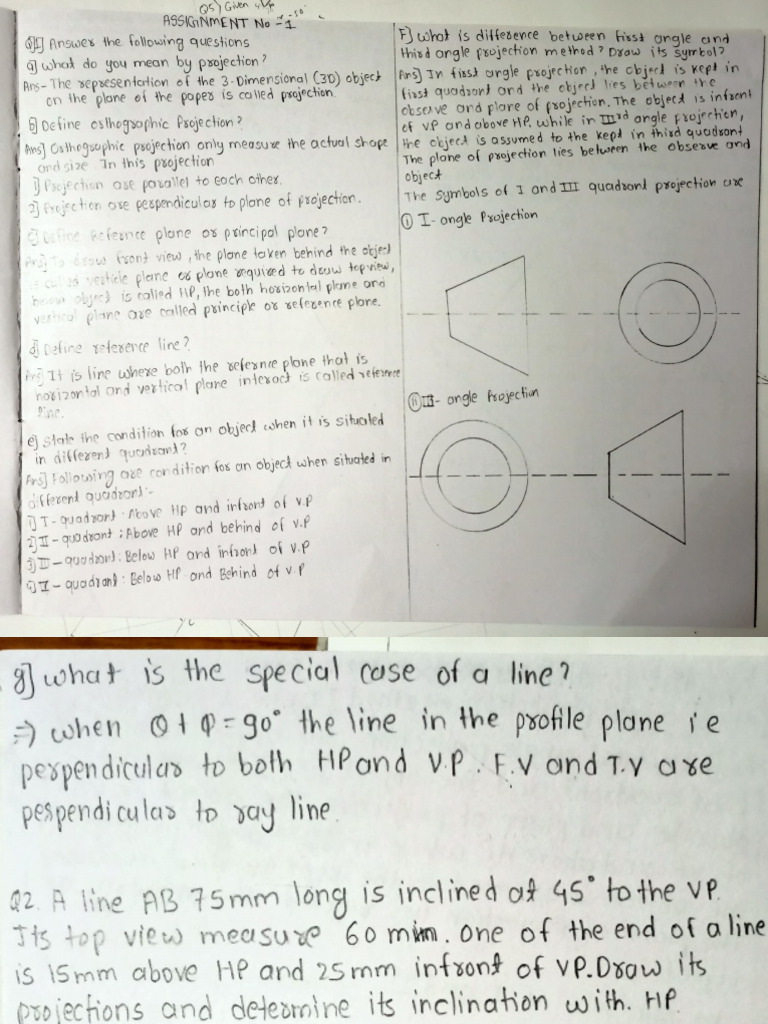 Q5) Given
ASSIGNMENT No - 1
Q1] Answer the following questions
a] what do you mean by projection?
Ans- The representation of the 3-Dimensional (3D) object
on the plane of the paper is called projection.
b] Define orthographic Projection?
Ans] Orthographic projection only measure the actual shape
and size. In this projection
1) Projection are parallel to each other.
2) Projection are perpendicular to plane of projection.
c] Define Refernce plane or principal plane?
Ans] To draw front view, the plane taken behind the object
is called verticle plane or plane required to draw top view,
below object is called HP, the both horizontal plane and
vertical plane are called principle or reference plane.
d] Define reference line?
Ans] It is line where both the refernce plane that is
horizontal and vertical plane interact is called reference
line.
e] State the condition for an object when it is situated
in different quadrant?
Ans] Following are condition for an object when situated in
different quadrant:-
1) I - quadrant : Above HP and infront of v.p
2) II - quadrant : Above HP and behind of v.p
3) III - quadrant : Below HP and infront of v.p
4) V - quadrant : Below HP and Behind of v.p
F] what is difference between first angle and
third angle projection method? Draw its symbol?
Ans] In first angle projection, the object is kept in
first quadrant and the object lies between the
observe and plane of projection. The object is infront
of VP and above HP. while in IIIrd angle projection,
the object is assumed to the kept in third quadrant
The plane of projection lies between the observe and
object
The symbols of I and III quadrant projection are
i) I - angle Projection
ii) III - angle Projection
g] what is the special case of a line?
⇒ when θ + φ = 90° the line in the profile plane i e
perpendicular to both HP and V.P. F.V and T.V are
perpendicular to ray line.
Q2. A line AB 75mm long is inclined at 45° to the VP.
Its top view measure 60 mm. one of the end of a line
is 15mm above HP and 25mm infront of VP. Draw its
projections and determine its inclination with. HP.